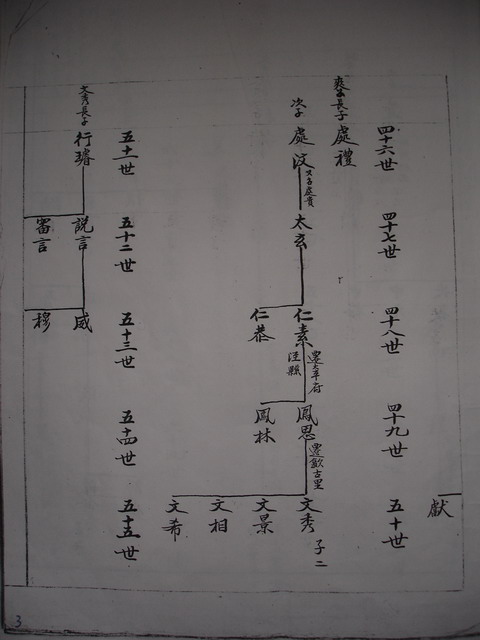 獻
四十六世
四十七世
四十八世
四十九世
五十世
長子 處禮
次子 處汶
太玄
仁素
遷太平府
涇縣
鳳思
遷歙古里
文秀 子二
仁恭
鳳林
文景
文相
文希
五十一世
五十二世
五十三世
五十四世
五十五世
文秀長子 行璿
説言
威
審言
穆
3